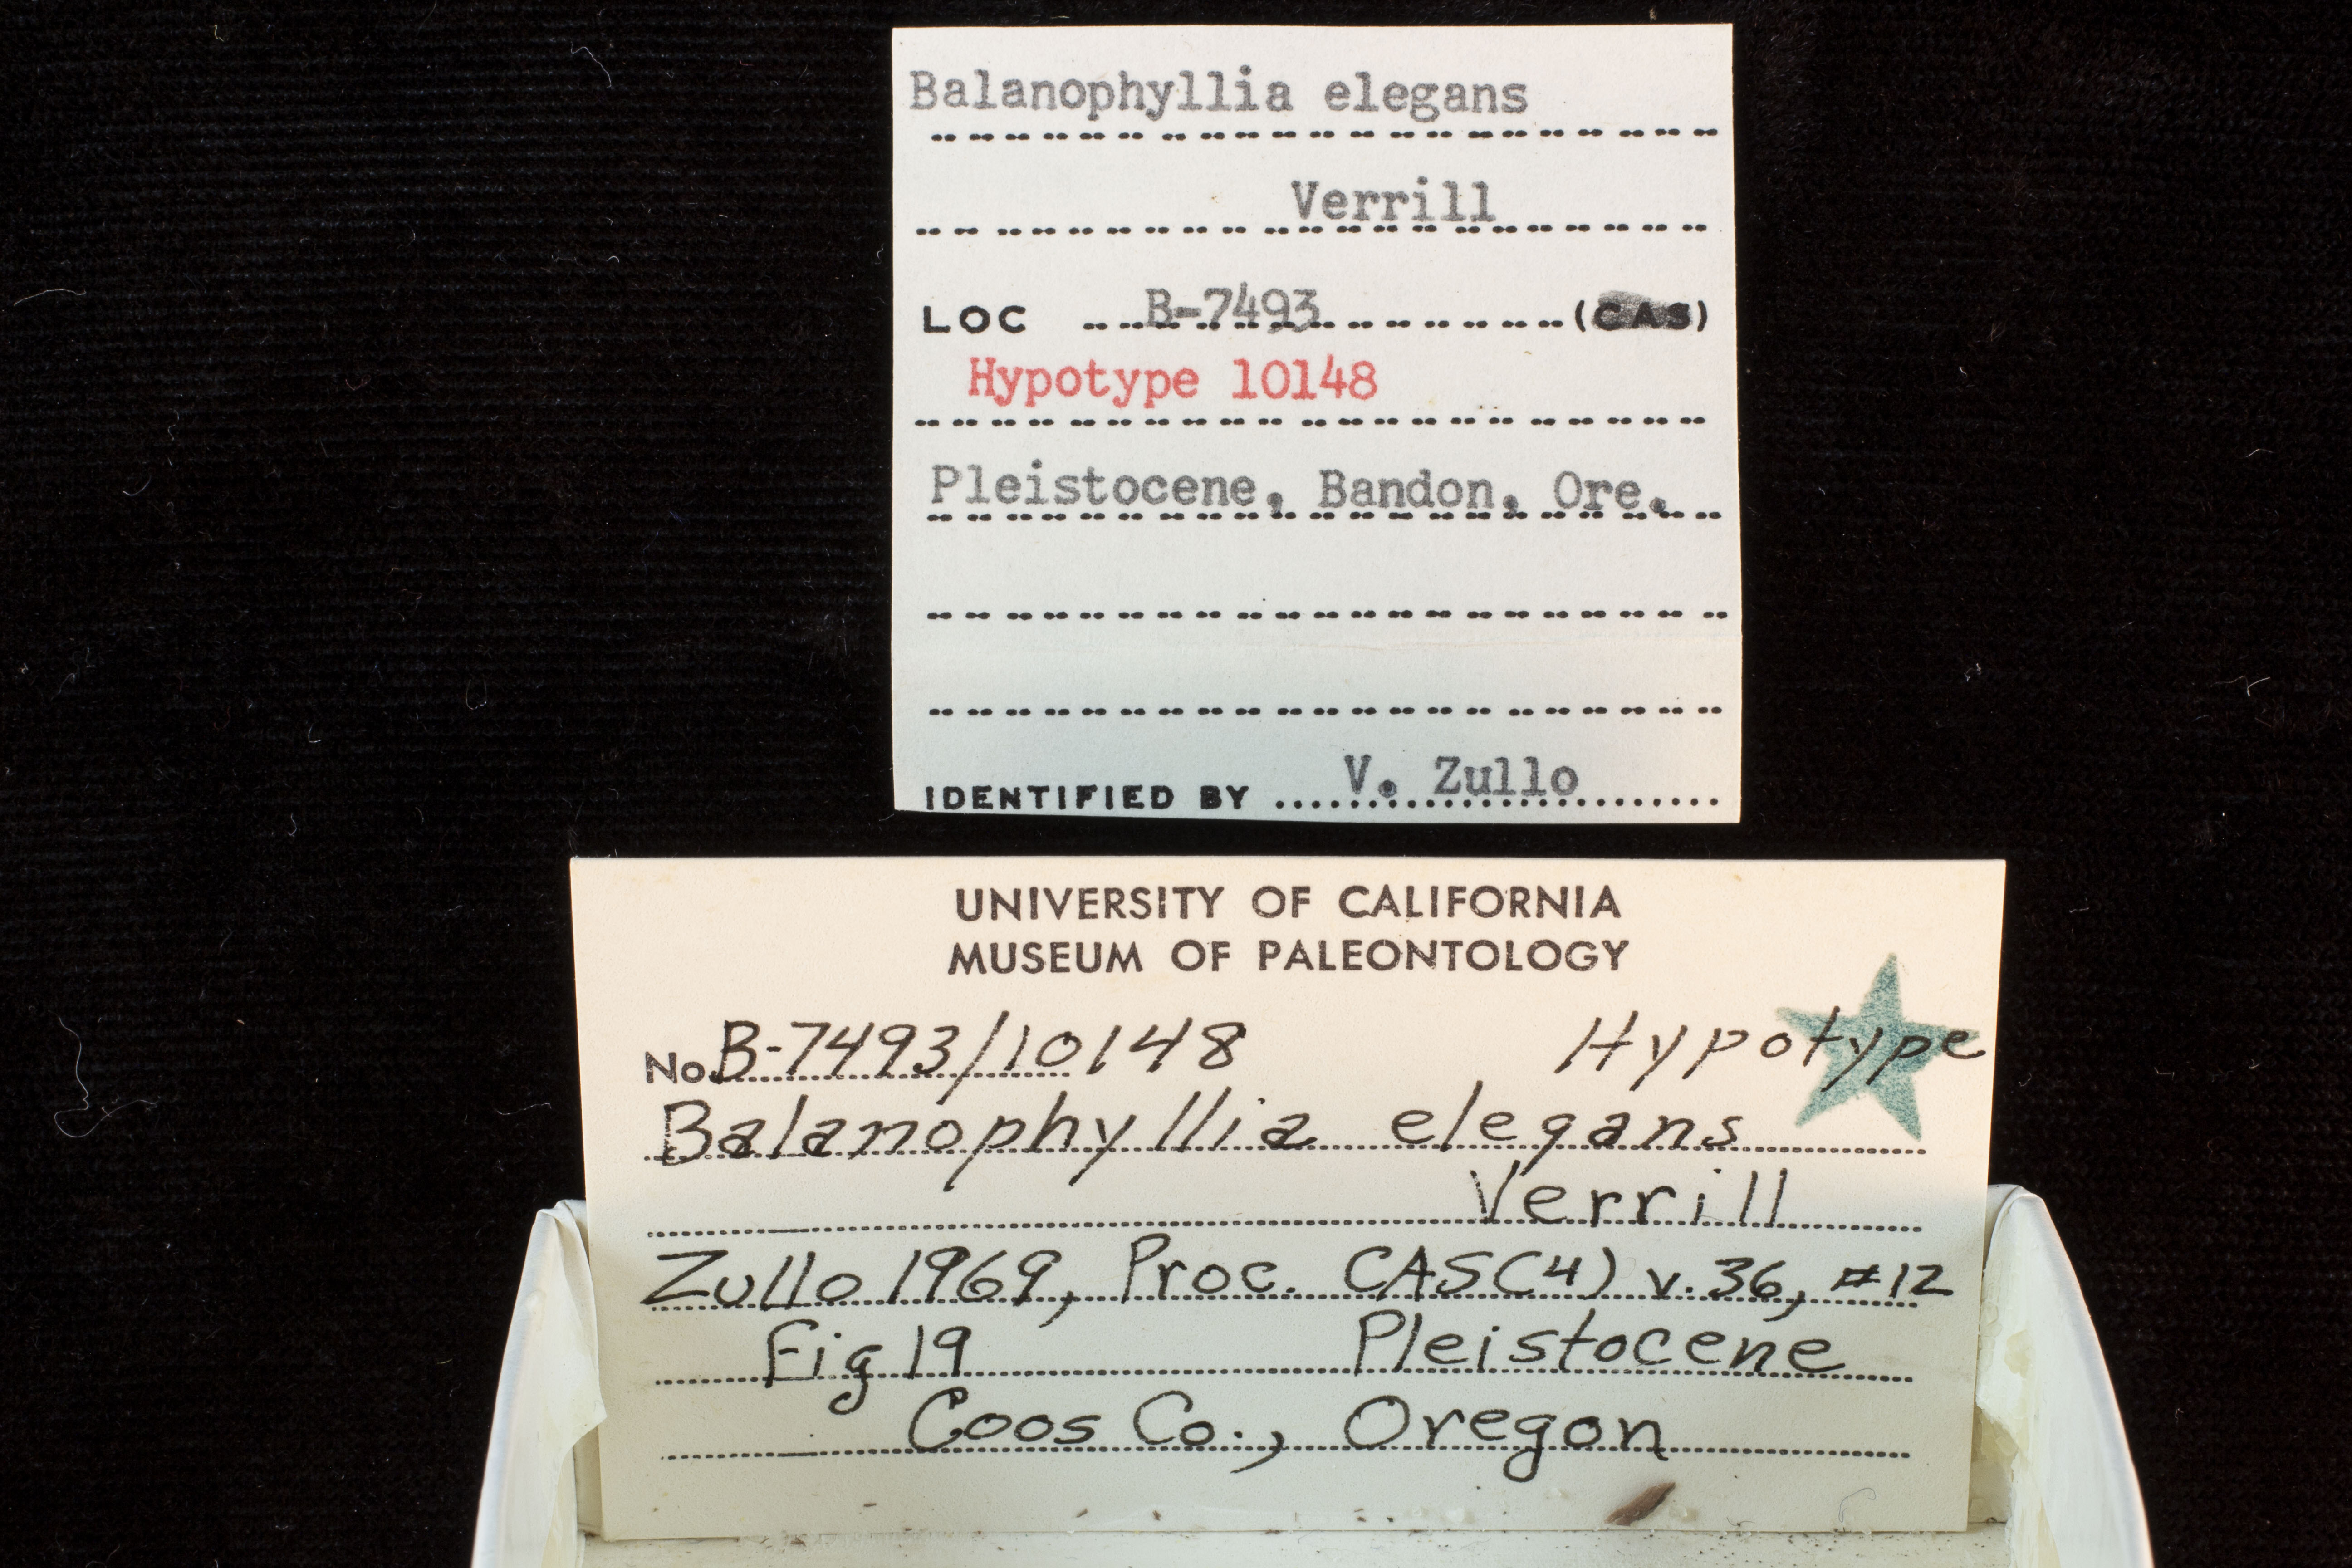 Balanophyllia elegans
Verrill
LOC B-7493 (CAS)
Hypotype 10148
Pleistocene, Bandon, Ore.
IDENTIFIED BY V. Zullo
UNIVERSITY OF CALIFORNIA
MUSEUM OF PALEONTOLOGY
No. B-7493/10148 Hypotype
Balanophyllia elegans
Verrill
Zullo 1969, Proc. CAS(4) v. 36, #12
Fig 19 Pleistocene
Coos Co., Oregon